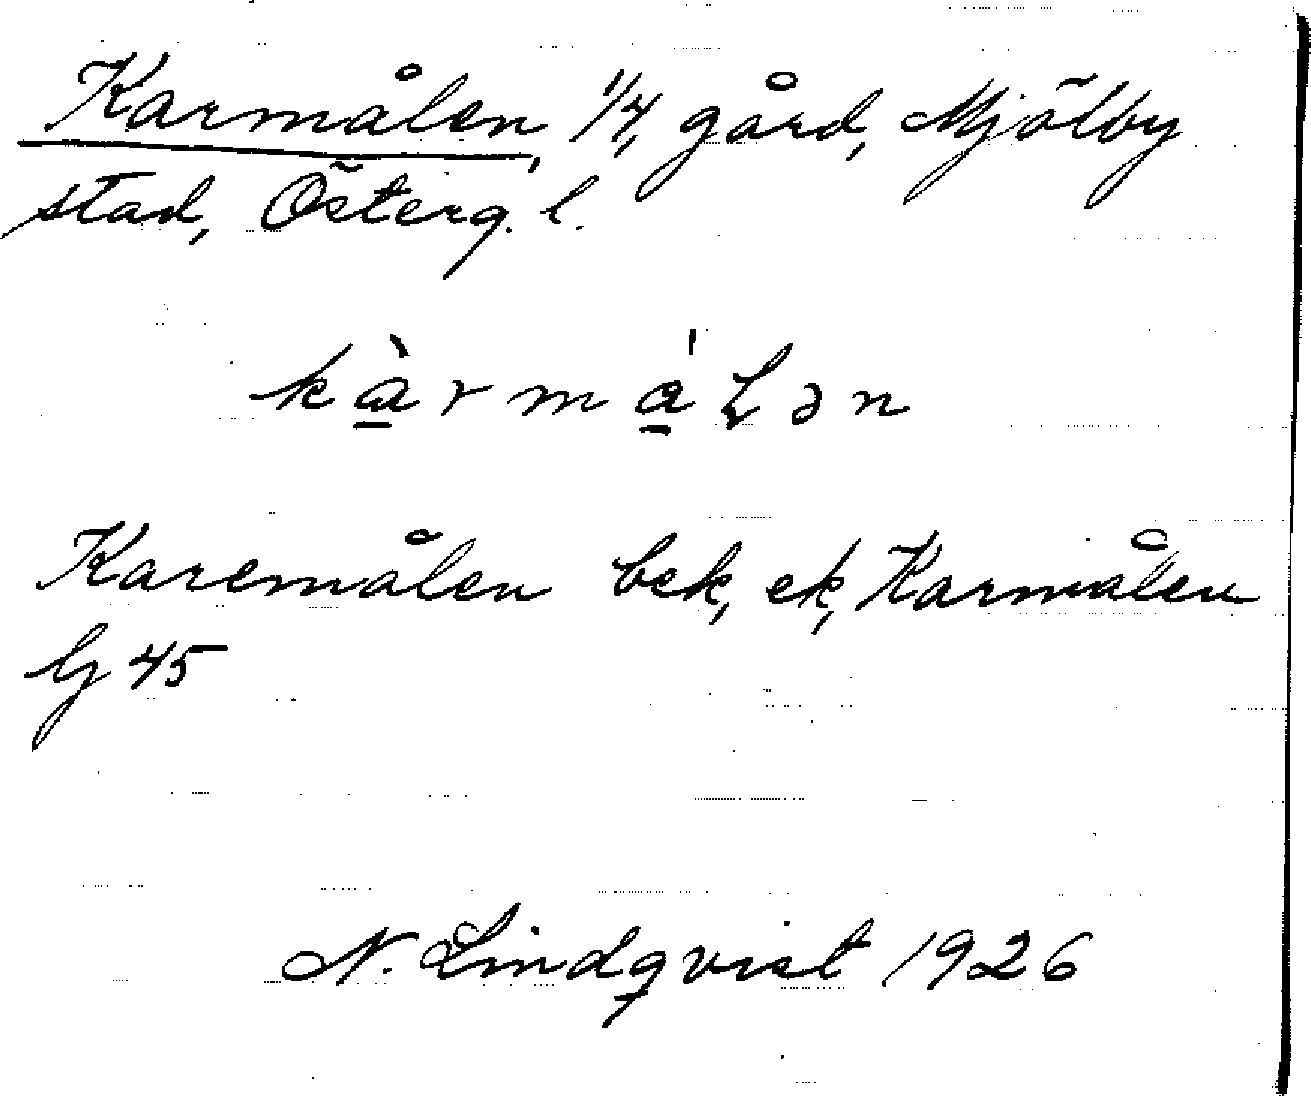 Karmålen, 1/4, gård, Mjölby
stad, Österg. l.
kàrmálən
Karemålen bek, ek, Karmålen
bj 45
N. Lindqvist 1926